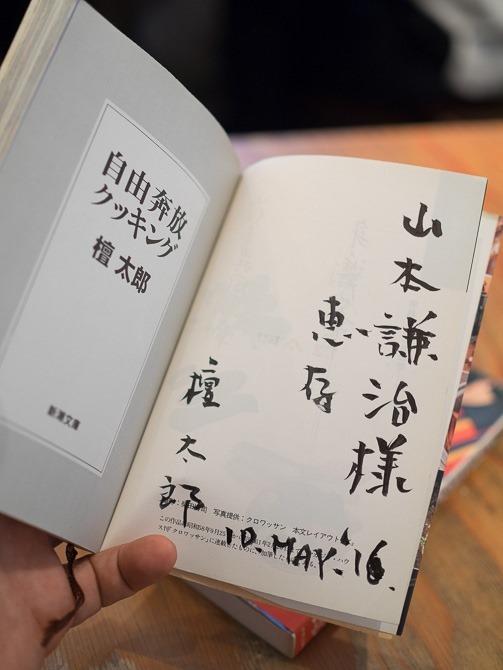 自由奔放
クッキング
檀 太郎
新潮文庫
山本謙治様
恵存
檀太郎
10.MAY.'16.
写真提供:クロワッサン 本文レイアウト
この作品は昭和58年9月25
「クロワッサン」に連載したものに、加筆した